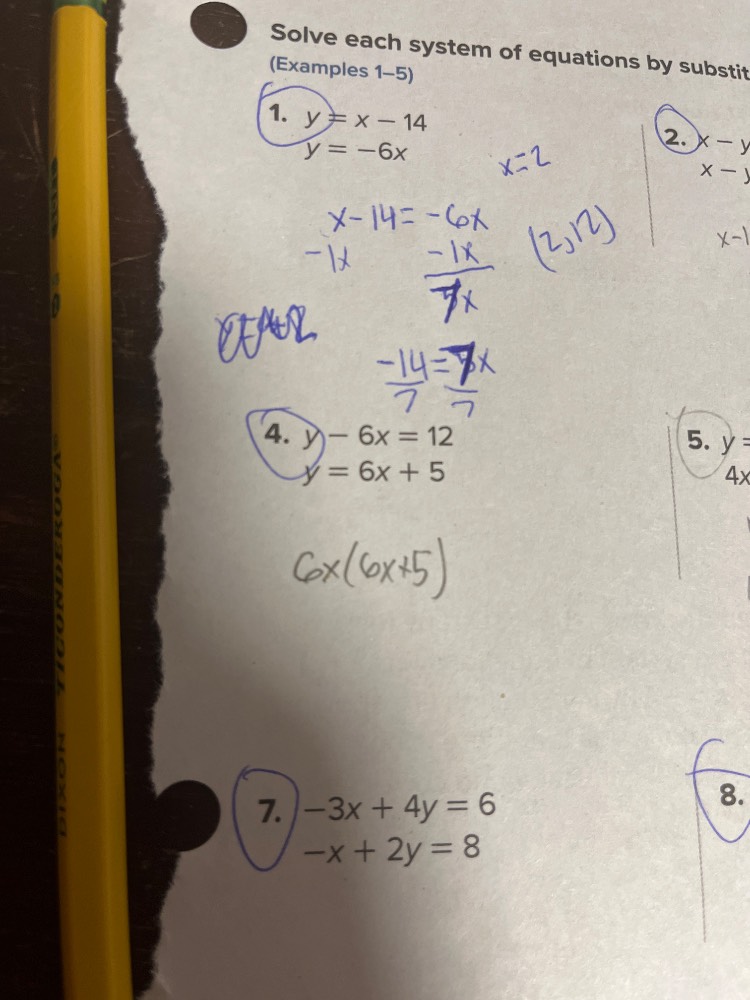 Solve each system of equations by substit
(Examples 1–5)
1. y = x − 14
y = −6x
x=2
x-14 = -6x
-1x -1x
7x
(2,12)
-14 = 7x
7 7
2. x − y
x − y
x-1
4. y − 6x = 12
y = 6x + 5
6x(6x+5)
5. y =
4x
7. −3x + 4y = 6
−x + 2y = 8
8.
DIXON TICONDEROGA